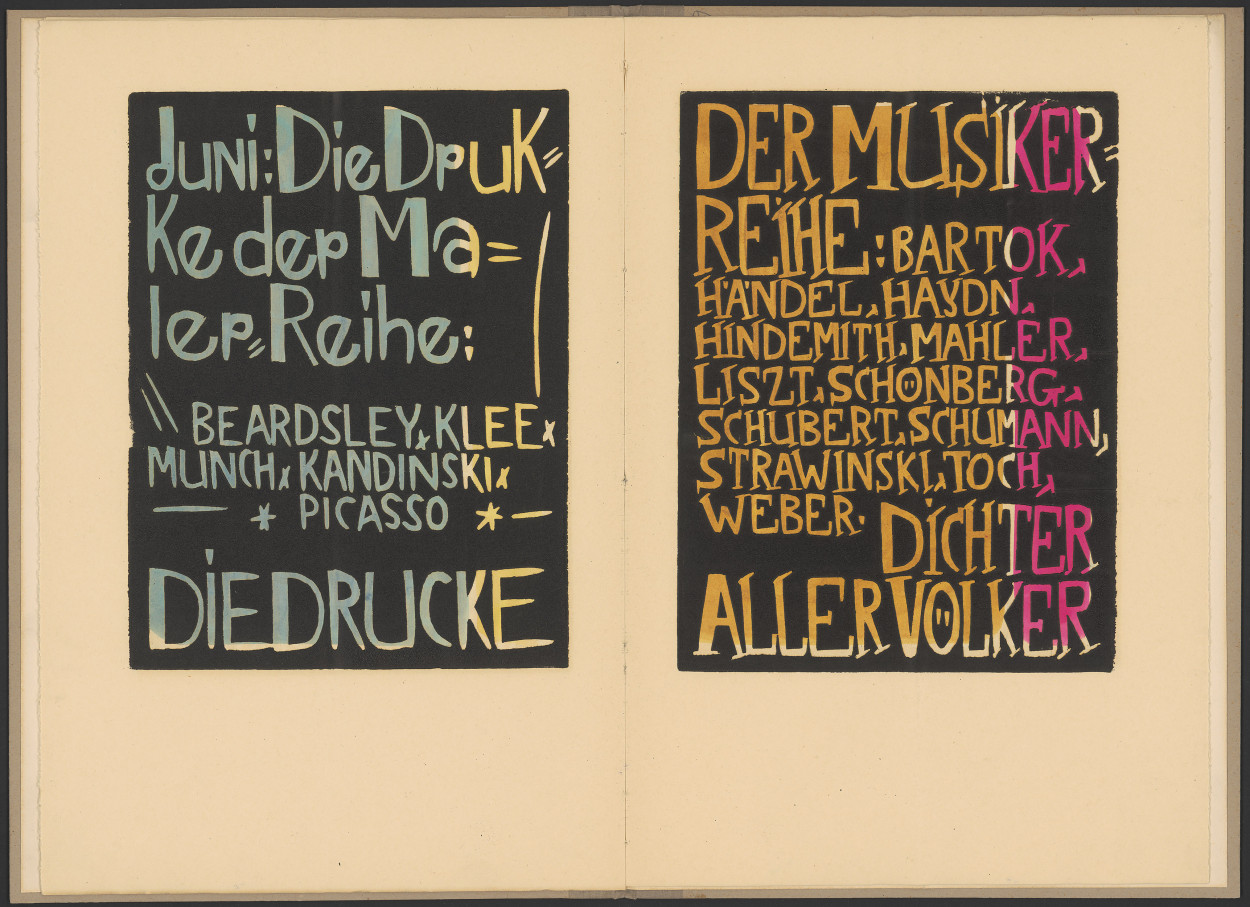 Juni: Die Druk=
Ke der Ma=
ler=Reihe:
BEARDSLEY, KLEE,
MUNCH, KANDINSKI,
* PICASSO *
DIE DRUCKE
DER MUSIKER=
REIHE: BARTOK,
HÄNDEL, HAYDN,
HINDEMITH, MAHLER,
LISZT, SCHÖNBERG,
SCHUBERT, SCHUMANN,
STRAWINSKI, TOCH,
WEBER. DICHTER
ALLER VÖLKER